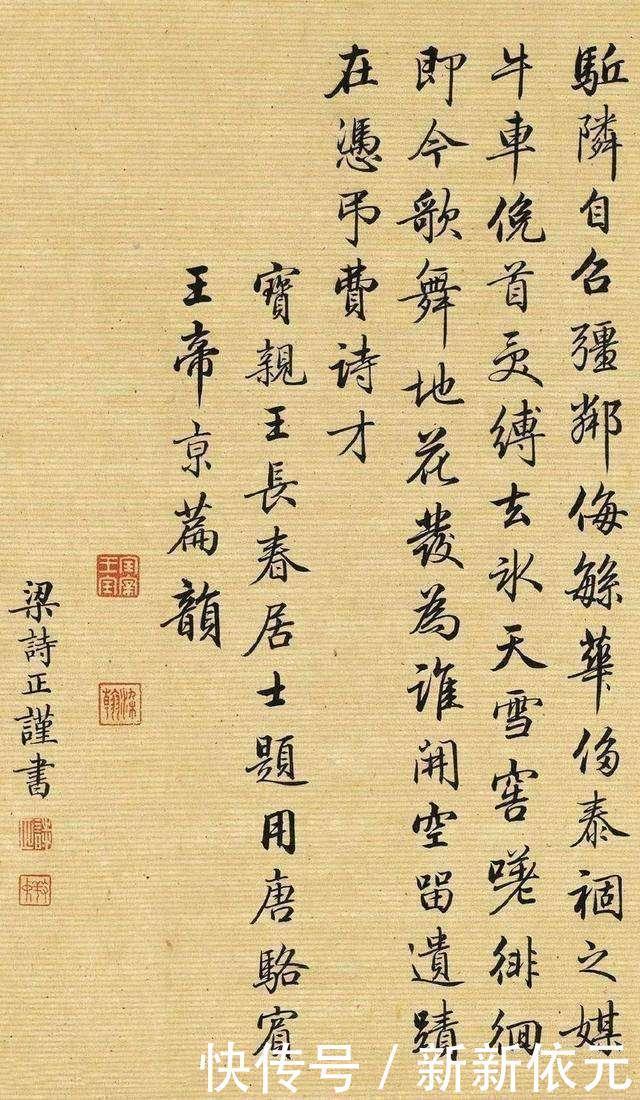 駈隣自召彊鄰侮緐華侈泰禍之媒
牛車俛首受縛去氷天雪窖嗟徘徊
即今歌舞地花發為誰開空留遺蹟
在憑弔費詩才
寶親王長春居士題用唐駱賓
王帝京篇韻
梁詩正謹書
快传号 / 新新依元